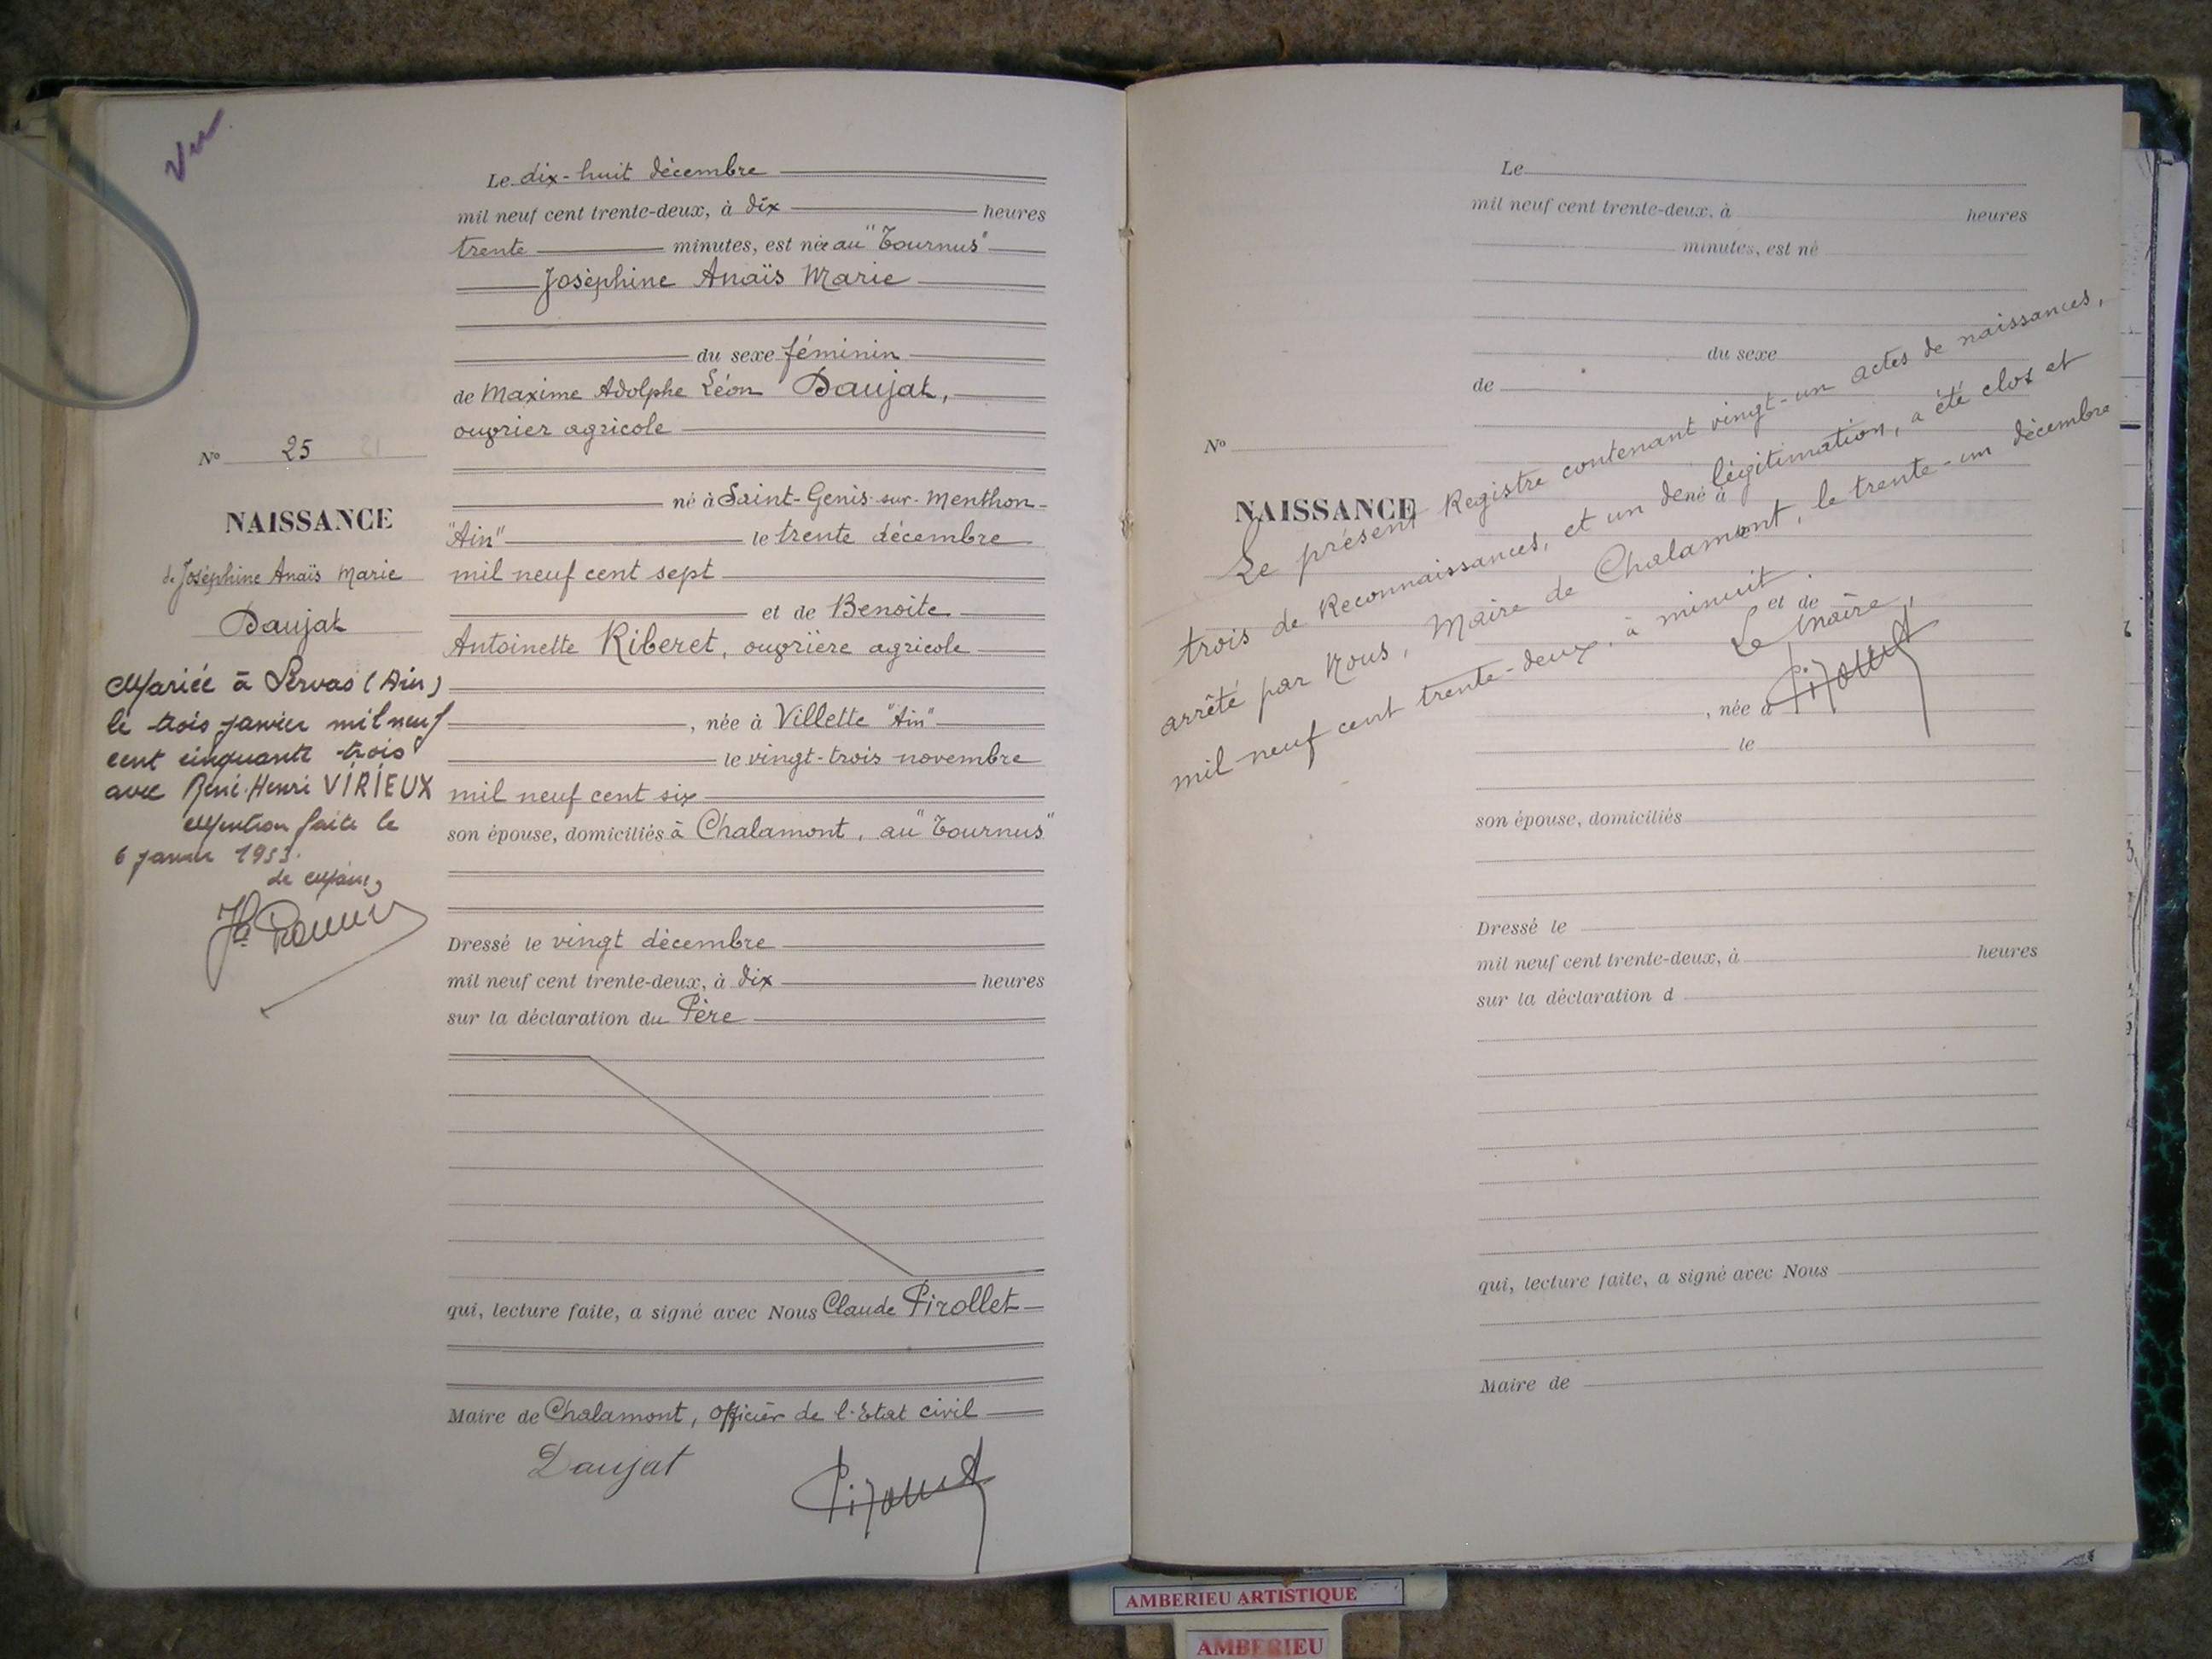 Vu
Le dix-huit décembre
mil neuf cent trente-deux, à dix heures
trente minutes, est née au "Tournus"
Joséphine Anaïs Marie
du sexe féminin
de Maxime Adolphe Léon Daujat,
ouvrier agricole
né à Saint-Genis-sur-Menthon-
"Ain" le trente décembre
mil neuf cent sept
et de Benoite
Antoinette Riberet, ouvrière agricole
, née à Villette "Ain"
le vingt-trois novembre
mil neuf cent six
son épouse, domiciliés à Chalamont, au "Tournus"
Dressé le vingt décembre
mil neuf cent trente-deux, à dix heures
sur la déclaration du Père
qui, lecture faite, a signé avec Nous Claude Pirollet
Maire de Chalamont, officier de l'Etat civil
Daujat
N° 25
NAISSANCE
de Joséphine Anaïs Marie
Daujat
Mariée à Servas (Ain)
le trois janvier mil neuf
cent cinquante trois
avec René-Henri VIRIEUX
Mention faite le
6 janvier 1953.
Le
mil neuf cent trente-deux, à heures
minutes, est né
du sexe
de
N°
NAISSANCE
né à
et de
, née à
le
son épouse, domiciliés
Dressé le
mil neuf cent trente-deux, à heures
sur la déclaration d
qui, lecture faite, a signé avec Nous
Maire de
Le présent Registre contenant vingt-un actes de naissances,
trois de Reconnaissances, et un de légitimation, a été clos et
arrêté par Nous, Maire de Chalamont, le trente-un décembre
mil neuf cent trente-deux, à minuit.
Le Maire,
AMBERIEU ARTISTIQUE
AMBERIEU